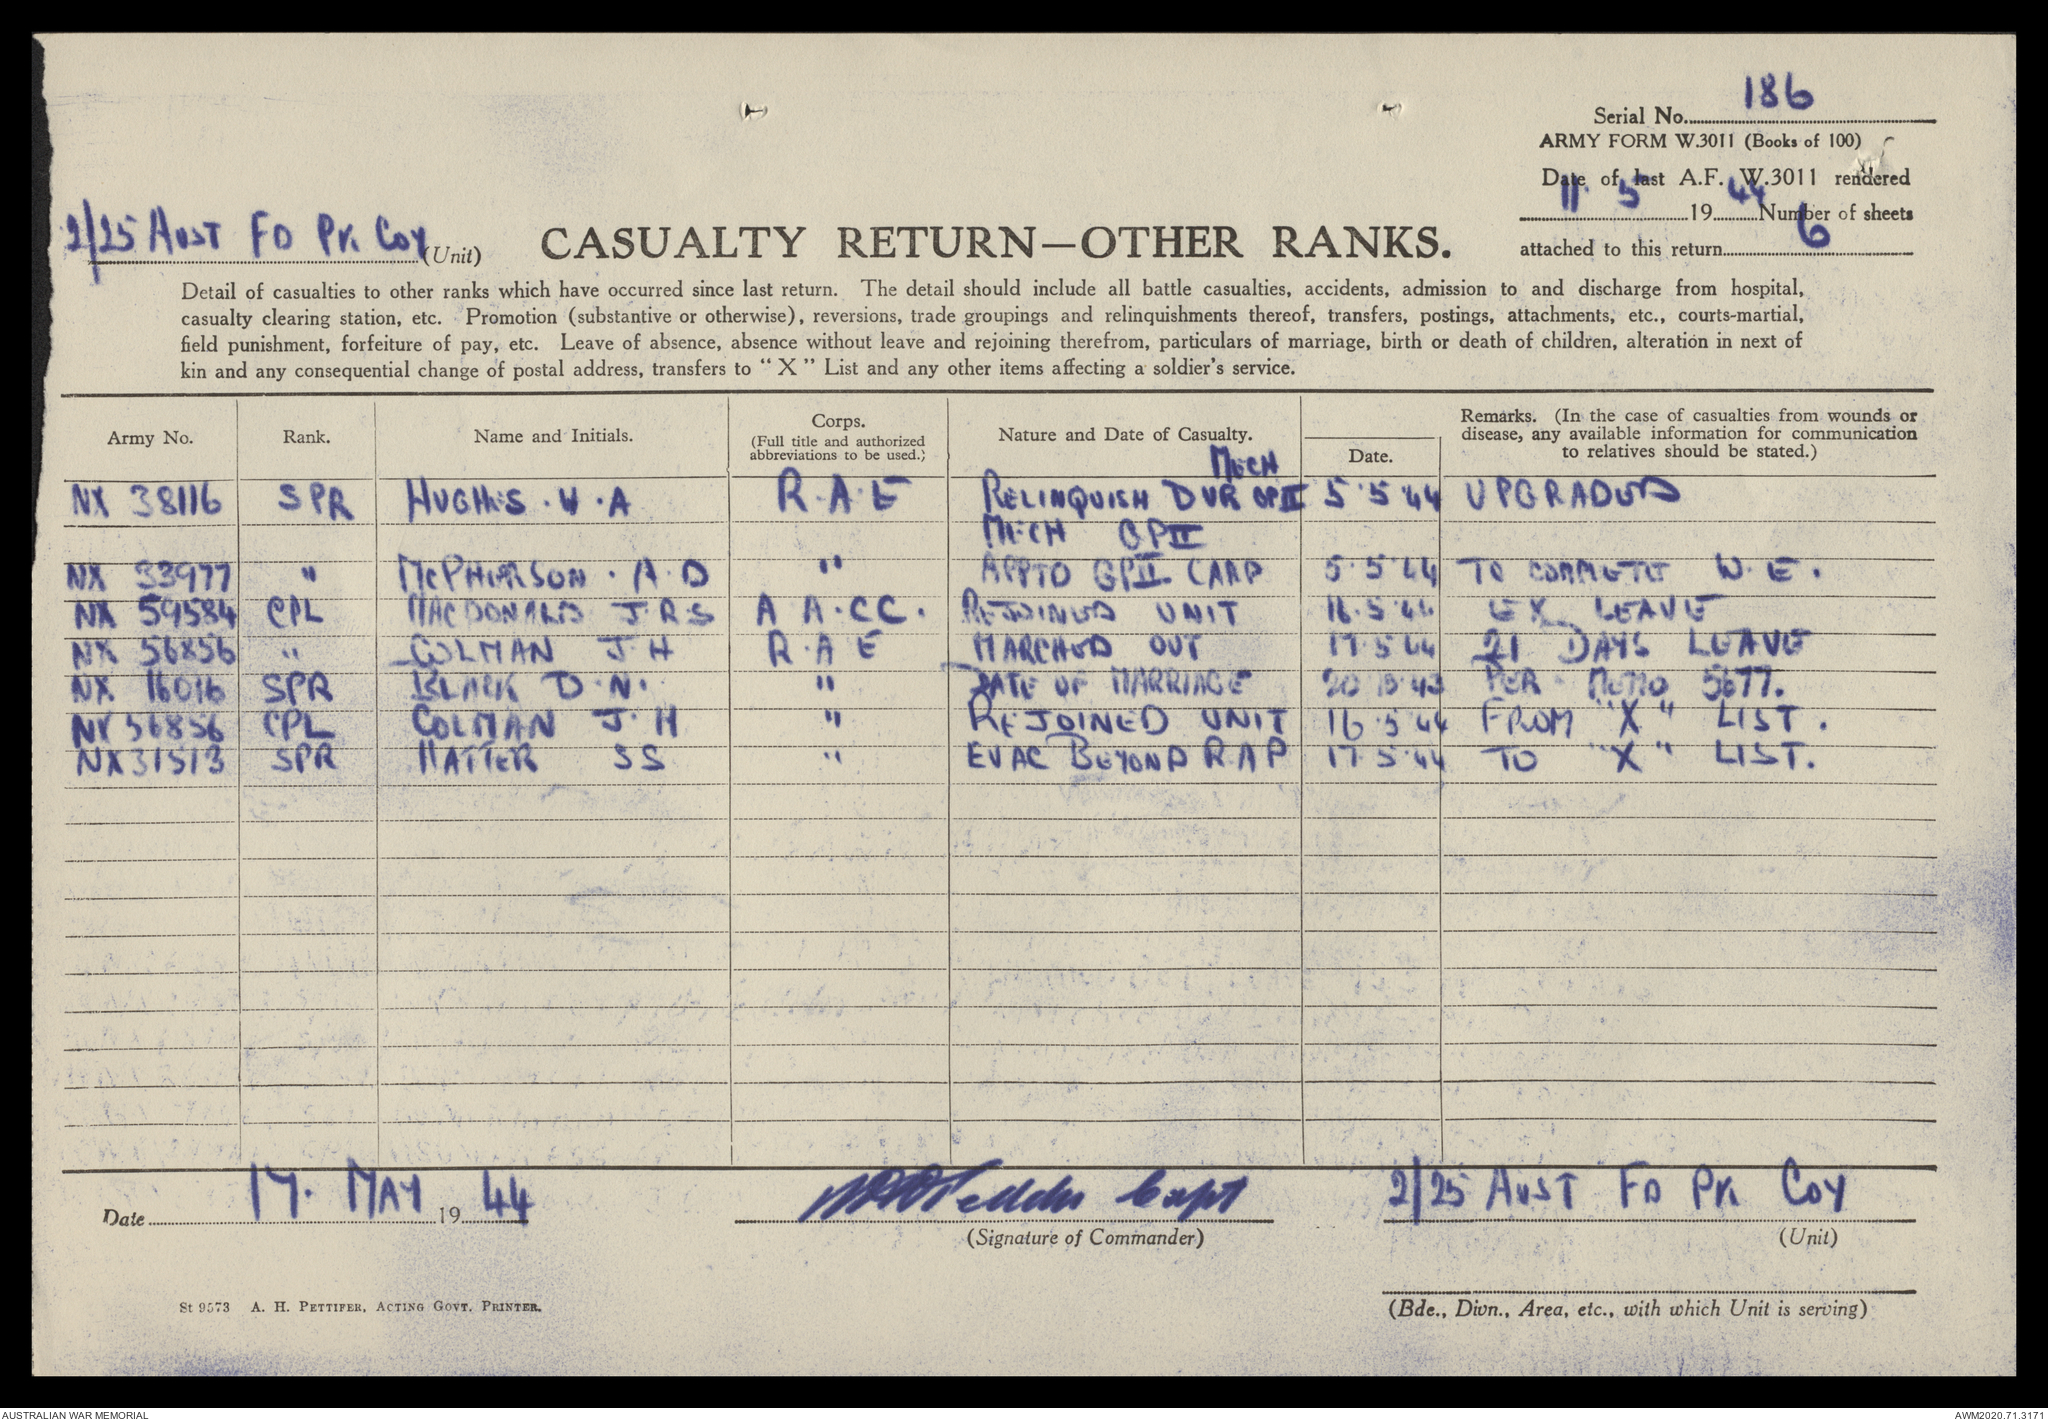 186
Serial No.
ARMY FORM W.3011 (Books of 100)
Date of last A.F. W.3011 rendered
11. 5 1944 Number of sheets
attached to this return 6
2/25 Aust Fd Pk Coy (Unit)
CASUALTY RETURN—OTHER RANKS.
Detail of casualties to other ranks which have occurred since last return. The detail should include all battle casualties, accidents, admission to and discharge from hospital,
casualty clearing station, etc. Promotion (substantive or otherwise), reversions, trade groupings and relinquishments thereof, transfers, postings, attachments, etc., courts-martial,
field punishment, forfeiture of pay, etc. Leave of absence, absence without leave and rejoining therefrom, particulars of marriage, birth or death of children, alteration in next of
kin and any consequential change of postal address, transfers to “X” List and any other items affecting a soldier's service.
Army No. Rank. Name and Initials. Corps. (Full title and authorized abbreviations to be used.) Nature and Date of Casualty. Date. Remarks. (In the case of casualties from wounds or disease, any available information for communication to relatives should be stated.)
MECH
NX 38116 SPR HUGHES . W . A R.A.E RELINQUISH DVR GPII 5.5.44 UPGRADED
MECH GPII
NX 33977 " McPHERSON . A.D " APPTD GPII CARP 5.5.44 TO COMPLETE W.E.
NX 59584 CPL MACDONALD J.R.S A A.CC. REJOINED UNIT 16.5.44 EX LEAVE
NX 56856 " COLMAN J.H R.A E MARCHED OUT 17.5.44 21 DAYS LEAVE
NX 16016 SPR BLACK D.N. " DATE OF MARRIAGE 43 PER MEMO 5677.
NX 56856 CPL COLMAN J.H " REJOINED UNIT 16.5.44 FROM "X" LIST.
NX31513 SPR HATTER SS " EVAC BEYOND RAP 17.5.44 TO "X" LIST.
Date 17. MAY 1944 Capt 2/25 Aust Fd Pk Coy
(Signature of Commander) (Unit)
St 9573 A. H. PETTIFER, ACTING GOVT. PRINTER.
(Bde., Divn., Area, etc., with which Unit is serving)
AUSTRALIAN WAR MEMORIAL AWM2020.71.3171